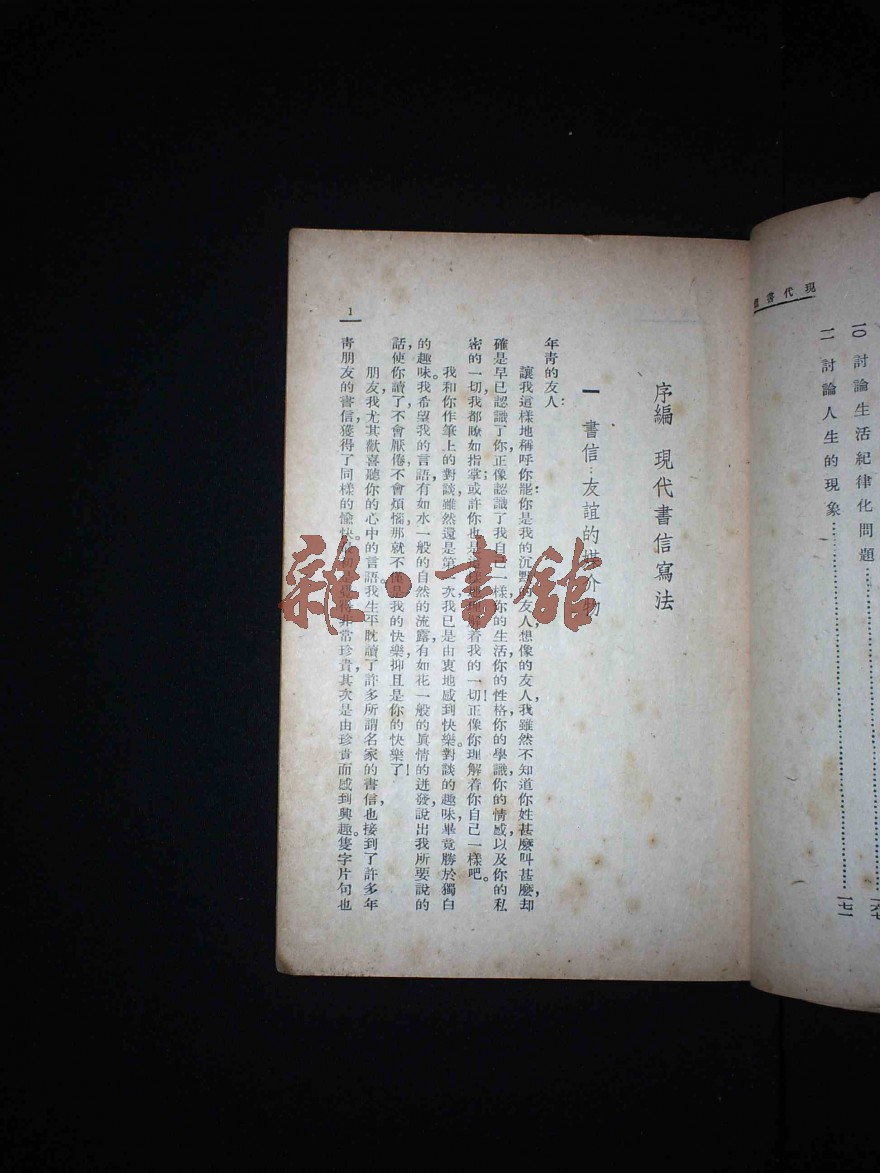 現代書信
一〇 討論生活紀律化問題……………一六七
一一 討論人生的現象……………一七一
序編 現代書信寫法
一 書信：友誼的媒介物
年青的友人：
讓我這樣地稱呼你罷：你是我的沉默的友人，想像的友人，我雖然不知道你姓甚麼叫甚麼，却
確是早已認識了你，正像認識了我自己一樣，你的生活，你的性格，你的學識，你的情感，以及你的私
密的一切，我都瞭如指掌；或許你也是這樣地理解着我的一切！正像你理解着你自己一樣吧。
我和你作筆上的對談，雖然還是第一次，我已是由衷地感到快樂。對談的趣味，畢竟勝於獨白
的趣味。我希望我的言語，有如水一般的自然的流露，有如花一般的眞情的迸發，說出我所要說的
話，使你讀了，不會厭倦，不會煩惱，那就不僅是我的快樂，抑且是你的快樂了！
朋友，我尤其歡喜聽你的心中的言語。我生平既讀了許多所謂名家的書信，也接到了許多年
靑朋友的書信，獲得了同樣的愉快。非常珍貴，其次是由珍貴而感到興趣。隻字片句也
1
雜·書館